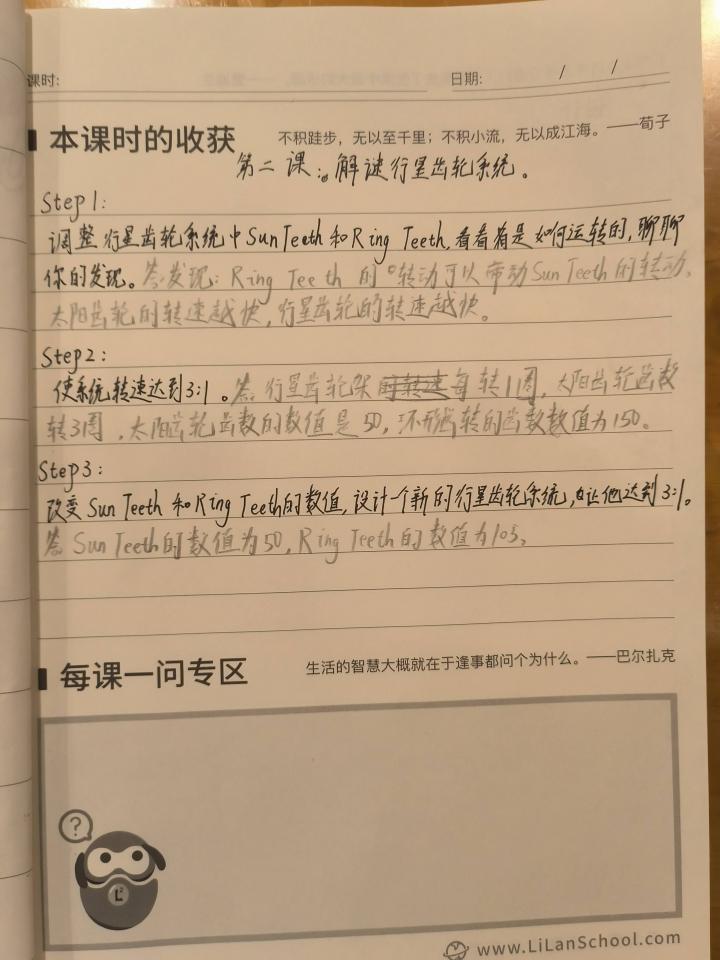 课时:
日期: / /
本课时的收获
不积跬步，无以至千里；不积小流，无以成江海。——荀子
第二课：解谜行星齿轮系统。
Step1:
调整行星齿轮系统中Sun Teeth和Ring Teeth,看看着是如何运转的,聊聊
你的发现。答:发现:Ring Teeth的转动可以带动Sun Teeth的转动。
太阳齿轮的转速越快,行星齿轮的转速越快。
Step2:
使系统转速达到3:1。答:行星齿轮架每转1圈,太阳齿轮齿数
转3周,太阳齿轮齿数的数值是50,环形齿转的齿数数值为150。
Step3:
改变Sun Teeth和Ring Teeth的数值,设计一个新的行星齿轮系统,让他达到3:1。
答 Sun Teeth的数值为50,Ring Teeth的数值为105。
每课一问专区
生活的智慧大概就在于逢事都问个为什么。——巴尔扎克
?
L
www.LiLanSchool.com